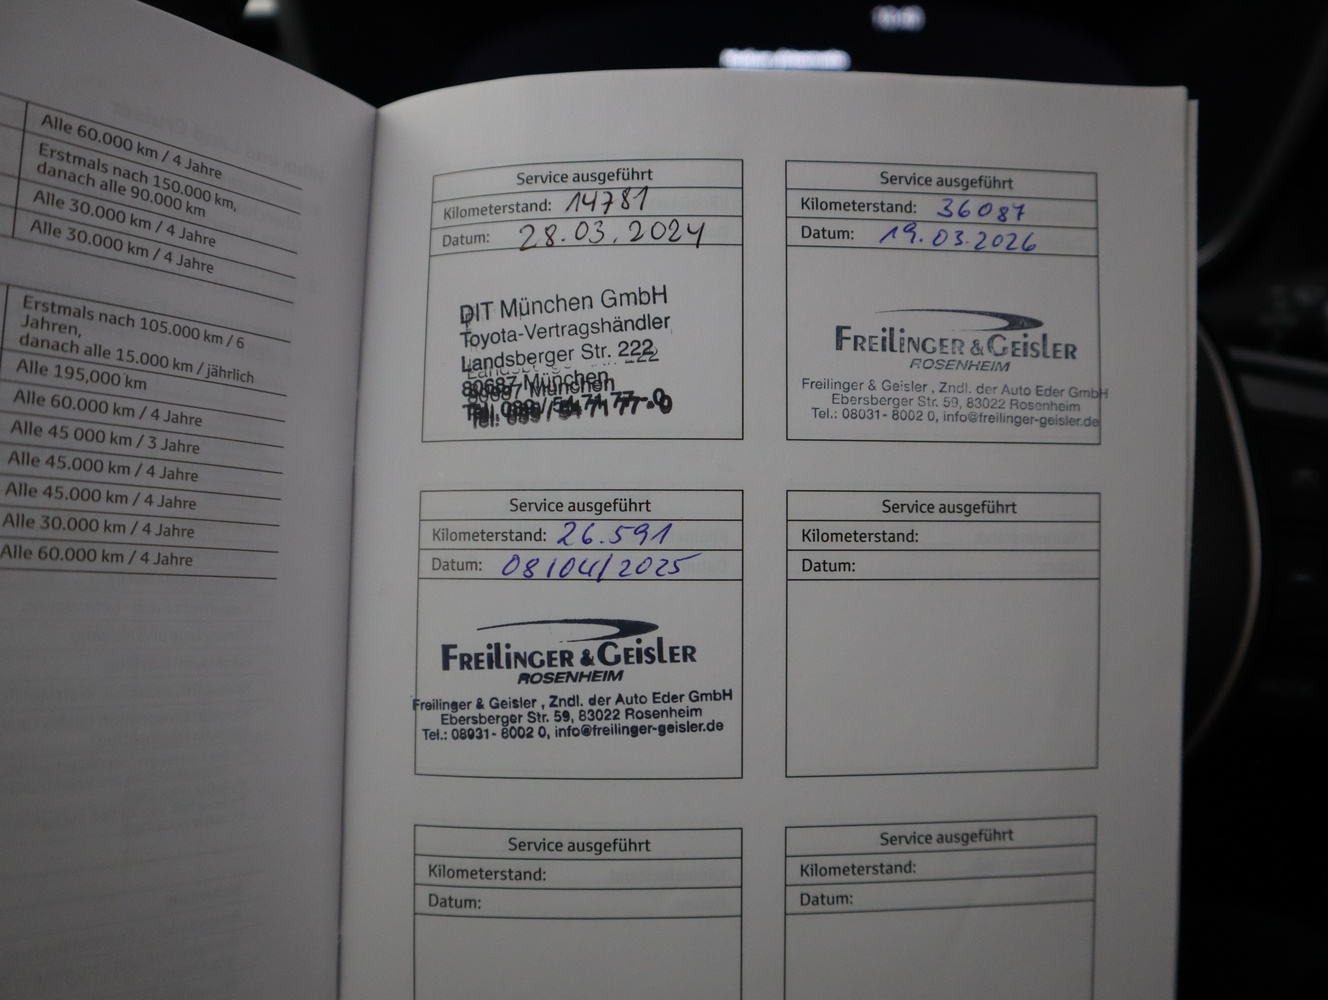 Alle 60.000 km / 4 Jahre
Erstmals nach 150.000 km,
danach alle 90.000 km
Alle 30.000 km / 4 Jahre
Alle 30.000 km / 4 Jahre
Erstmals nach 105.000 km / 6
Jahren,
danach alle 15.000 km / jährlich
Alle 195,000 km
Alle 60.000 km / 4 Jahre
Alle 45 000 km / 3 Jahre
Alle 45.000 km / 4 Jahre
Alle 45.000 km / 4 Jahre
Alle 30.000 km / 4 Jahre
Alle 60.000 km / 4 Jahre
Service ausgeführt
Kilometerstand: 14781
Datum: 28.03.2024
DIT München GmbH
Toyota-Vertragshändler
Landsberger Str. 222
80687 München
Tel. 089 / 54 71 77-0
Service ausgeführt
Kilometerstand: 36087
Datum: 19.03.2026
FREILINGER & GEISLER
ROSENHEIM
Freilinger & Geisler , Zndl. der Auto Eder GmbH
Ebersberger Str. 59, 83022 Rosenheim
Tel.: 08031- 8002 0, info@freilinger-geisler.de
Service ausgeführt
Kilometerstand: 26.591
Datum: 08/04/2025
FREILINGER & GEISLER
ROSENHEIM
Freilinger & Geisler , Zndl. der Auto Eder GmbH
Ebersberger Str. 59, 83022 Rosenheim
Tel.: 08031- 8002 0, info@freilinger-geisler.de
Service ausgeführt
Kilometerstand:
Datum:
Service ausgeführt
Kilometerstand:
Datum:
Service ausgeführt
Kilometerstand:
Datum: